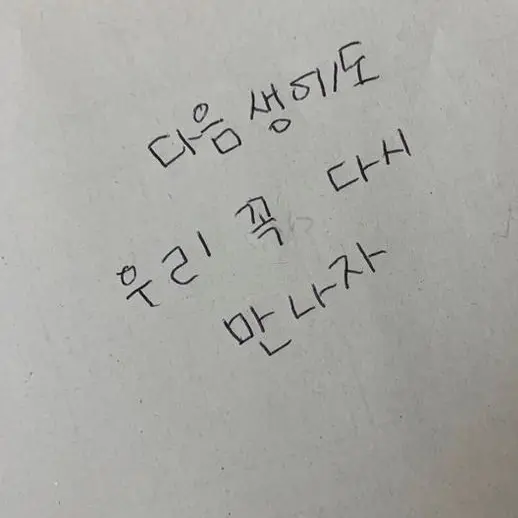 다음 생에도
우리 꼭 다시
만나자